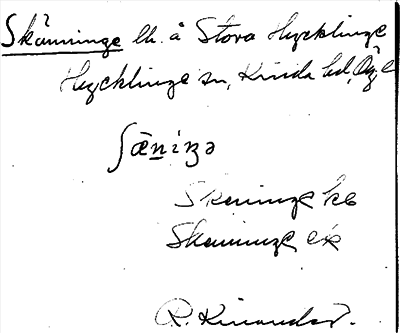 Skänninge lh. å Stora Hycklinge
Hycklinge sn, Kinda hd, Ög.
ʃæniŋə
Skeninge
Skeninge
R. Kinander.